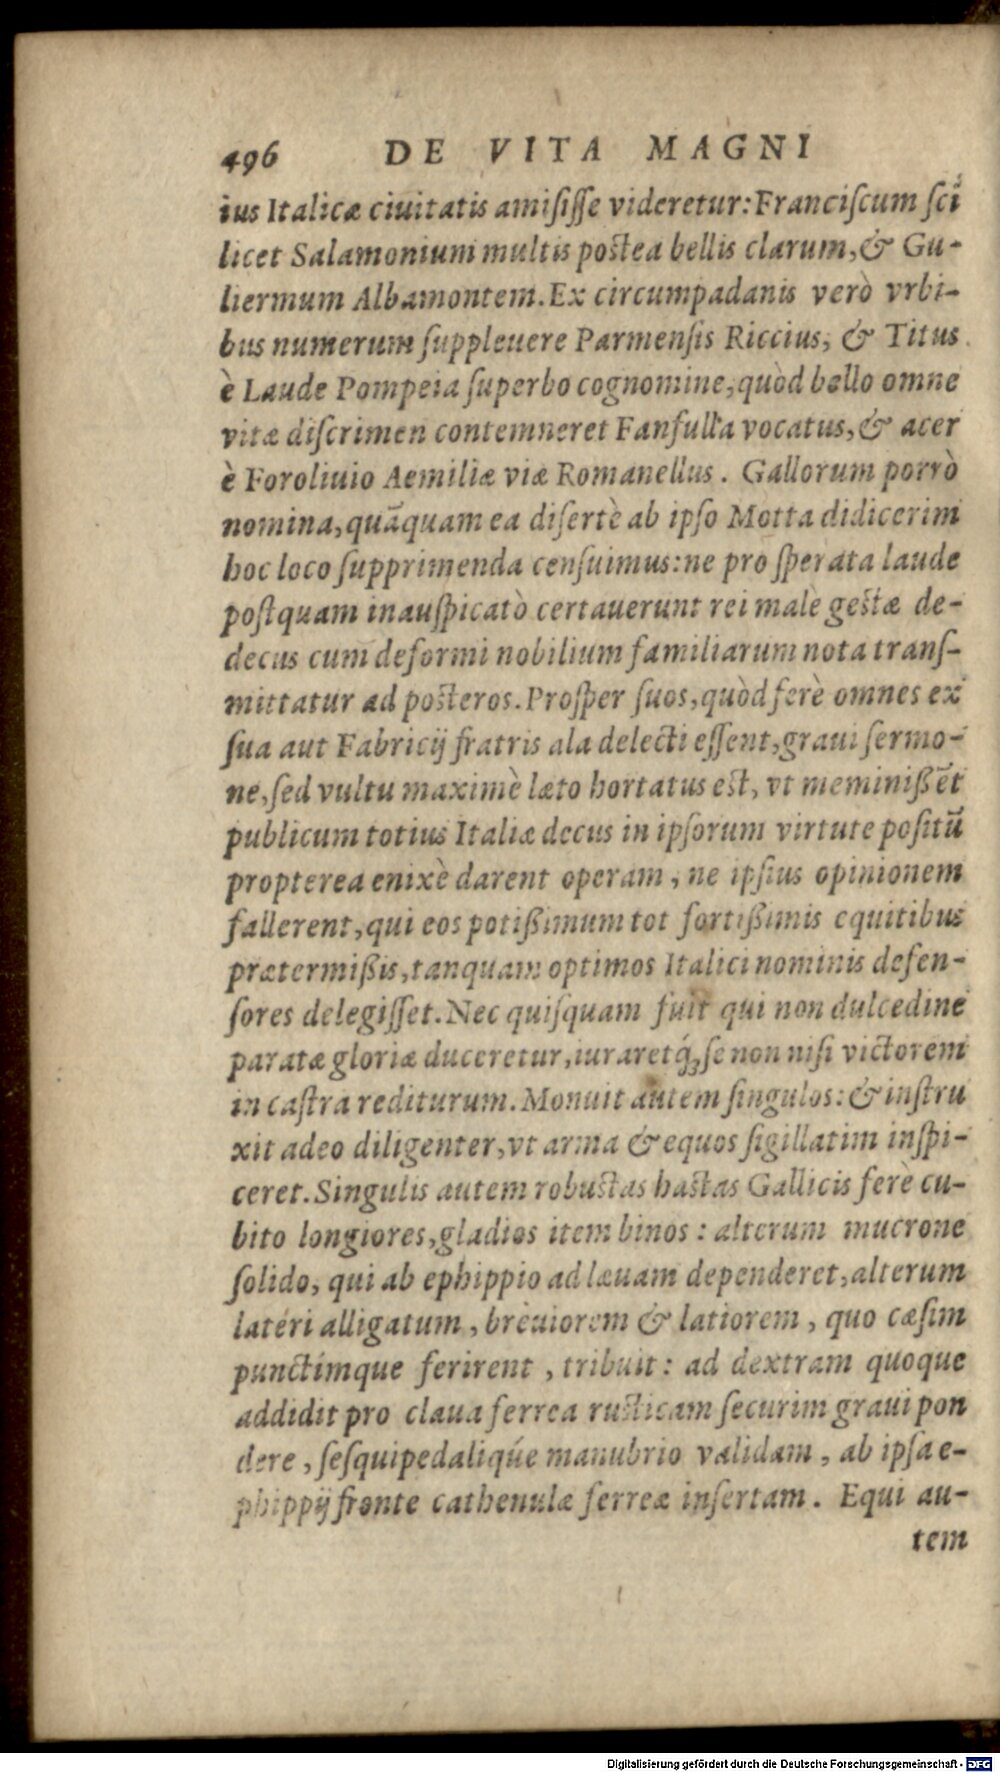 496 DE VITA MAGNI
ius Italicæ ciuitatis amiſiſſe videretur: Franciſcum ſci
licet Salamonium multis poſtea bellis clarum, & Gu-
liermum Albamontem. Ex circumpadanis verò vrbi-
bus numerum ſuppleuere Parmenſis Riccius, & Titus
è Laude Pompeia ſuperbo cognomine, quòd bello omne
vitæ diſcrimen contemneret Fanfulla vocatus, & acer
è Foroliuio Aemiliæ viæ Romanellus. Gallorum porrò
nomina, quãquam ea diſertè ab ipſo Motta didicerim
hoc loco ſupprimenda cenſuimus: ne pro ſperata laude
poſtquam inauſpicatò certauerunt rei malè geſtæ de-
decus cum deformi nobilium familiarum nota tranſ-
mittatur ad poſteros. Proſper ſuos, quòd ferè omnes ex
ſua aut Fabricij fratris ala delecti eſſent, graui ſermo-
ne, ſed vultu maximè læto hortatus eſt, vt meminißẽt
publicum totius Italiæ decus in ipſorum virtute poſitũ
propterea enixè darent operam, ne ipſius opinionem
fallerent, qui eos potißimum tot fortißimis equitibus
prætermißis, tanquam optimos Italici nominis defen-
ſores delegiſſet. Nec quiſquam fuit qui non dulcedine
paratæ gloriæ duceretur, iuraretq́; ſe non niſi victorem
in caſtra rediturum. Monuit autem ſingulos: & inſtru
xit adeo diligenter, vt arma & equos ſigillatim inſpi-
ceret. Singulis autem robuſtas haſtas Gallicis ferè cu-
bito longiores, gladios item binos: alterum mucrone
ſolido, qui ab ephippio ad læuam dependeret, alterum
latéri alligatum, breuiorem & latiorem, quo cæſim
punctímque ferirent, tribuit: ad dextram quoque
addidit pro claua ferrea ruſticam ſecurim graui pon
dere, ſeſquipedaliqúe manubrio validam, ab ipſa e-
phippij fronte cathenulæ ferreæ inſertam. Equi au-
tem
Digitalisierung gefördert durch die Deutsche Forschungsgemeinschaft - DFG